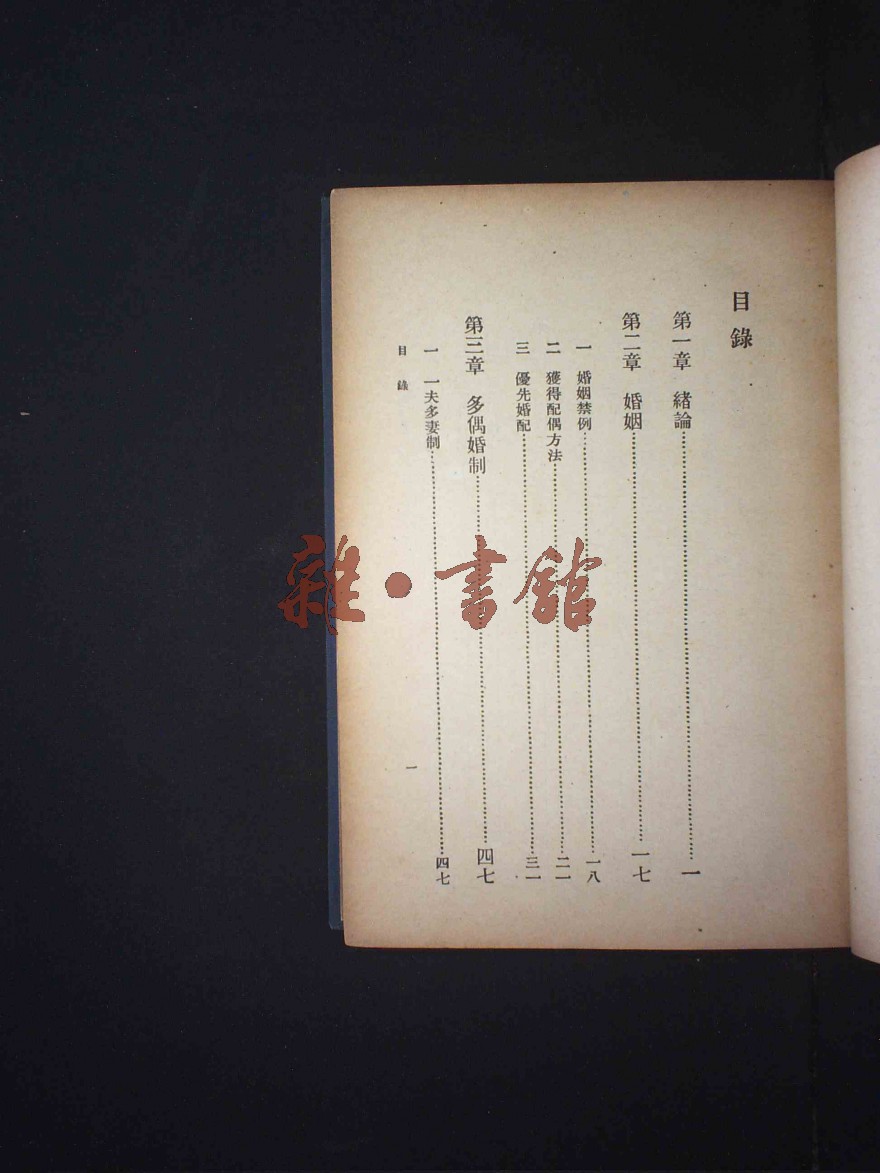 目錄
第一章　緒論………一
第二章　婚姻………一七
一　婚姻禁例………一八
二　獲得配偶方法………二一
三　優先婚配………三一
第三章　多偶婚制………四七
一　一夫多妻制………四七
目錄
一
雜·書館